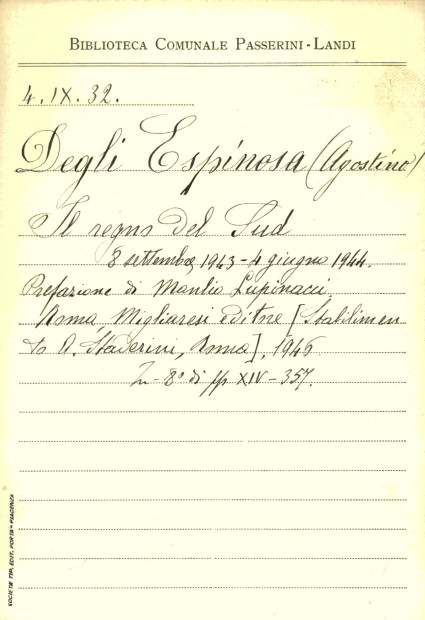 BIBLIOTECA COMUNALE PASSERINI-LANDI
4.IX.32.
Degli Espinosa (Agostino)
Il regno del Sud
8 settembre 1943 - 4 giugno 1944.
Prefazione di Manlio Lupinacci.
Roma, Migliaresi editore [Stabilimen
to A. Staderini, Roma], 1946
In-8° di pp XIV-357.
SOCIETÀ TIP. EDIT. PORTA - PIACENZA